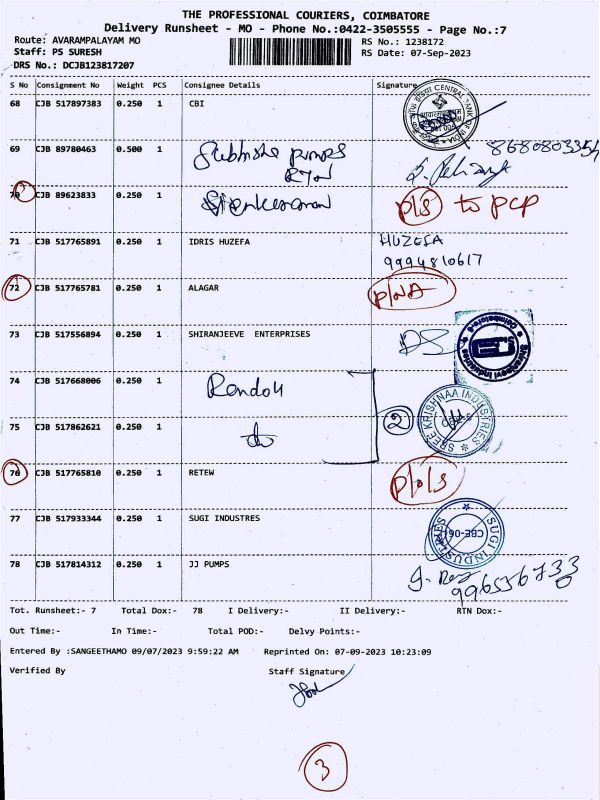 THE PROFESSIONAL COURIERS, COIMBATORE
Delivery Runsheet - MO - Phone No.:0422-3505555 - Page No.:7
Route: AVARAMPALAYAM MO
RS No.: 1238172
Staff: PS SURESH
RS Date: 07-Sep-2023
DRS No.: DCJB123817207
S No Consignment No Weight PCS Consignee Details Signature
68 CJB 517897383 0.250 1 CBI
CENTRAL BANK
69 CJB 89780463 0.500 1 pumps 8680803354
70 CJB 89623833 0.250 1 P/S to PCP
71 CJB 517765891 0.250 1 IDRIS HUZEFA HUZEFA
9994810617
72 CJB 517765781 0.250 1 ALAGAR P/NA
73 CJB 517556894 0.250 1 SHIRANJEEVE ENTERPRISES
74 CJB 517668006 0.250 1
SREE KRISHNAA INDUSTRIES
75 CJB 517862621 0.250 1 2
76 CJB 517765810 0.250 1 RETEW P/O/S
77 CJB 517933344 0.250 1 SUGI INDUSTRES
SUGI INDUSTRIES
CBE-06
78 CJB 517814312 0.250 1 JJ PUMPS
Tot. Runsheet:- 7 Total Dox:- 78 I Delivery:- II Delivery:- RTN Dox:-
Out Time:- In Time:- Total POD:- Delvy Points:-
Entered By :SANGEETHAMO 09/07/2023 9:59:22 AM Reprinted On: 07-09-2023 10:23:09
Verified By Staff Signature
3